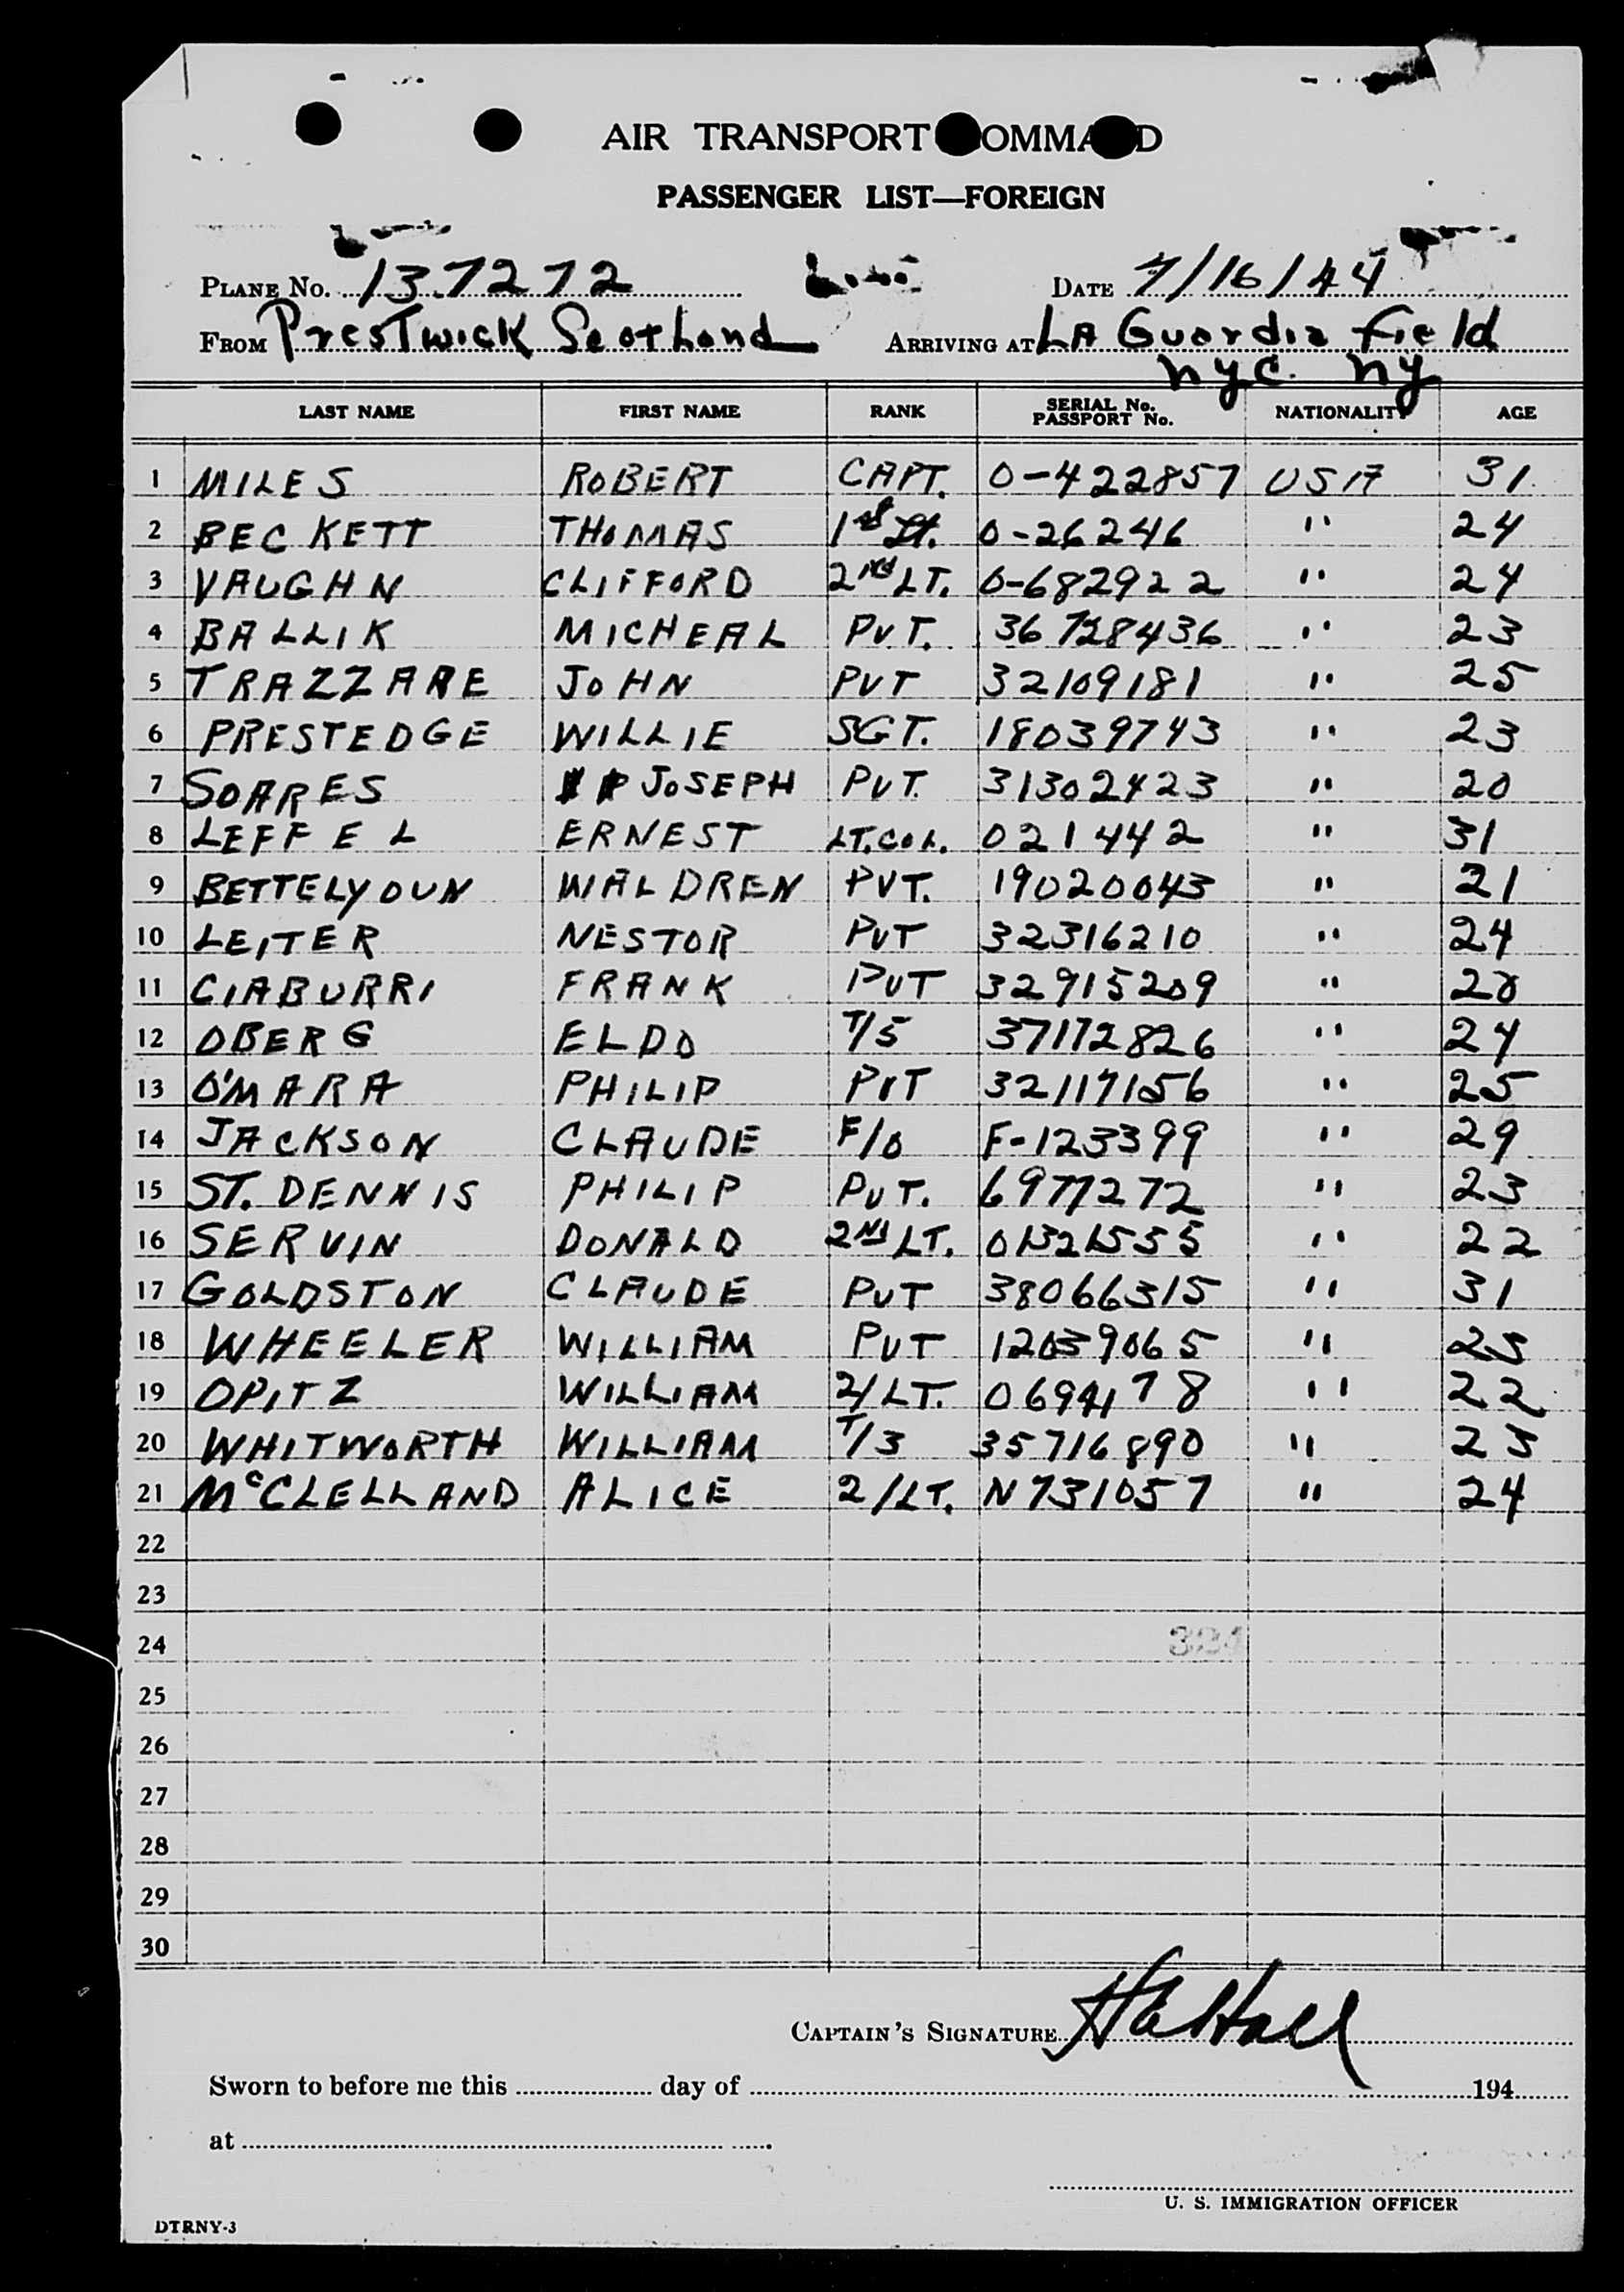 AIR TRANSPORT COMMAND
PASSENGER LIST—FOREIGN
PLANE No. 137272 DATE 7/16/44
FROM Prestwick Scotland ARRIVING AT LA Guardia Field
nyc. ny
LAST NAME FIRST NAME RANK SERIAL No. PASSPORT No. NATIONALITY AGE
1 MILES ROBERT CAPT. O-422857 USA 31
2 BECKETT THOMAS 1st Lt. O-26246 " 24
3 VAUGHN CLIFFORD 2ND LT. O-682922 " 24
4 BALLIK MICHEAL PVT. 36728436 " 23
5 TRAZZARE JOHN PVT 32109181 " 25
6 PRESTEDGE WILLIE SGT. 18039743 " 23
7 SOARES JOSEPH PVT. 31302423 " 20
8 LEFFEL ERNEST LT.COL. 021442 " 31
9 BETTELYOUN WALDREN PVT. 19020043 " 21
10 LEITER NESTOR PVT 32316210 " 24
11 CIABURRI FRANK PVT 32915209 " 20
12 OBERG ELDO T/5 37172826 " 24
13 O'MARA PHILIP PVT 32117156 " 25
14 JACKSON CLAUDE F/O F-123399 " 29
15 ST. DENNIS PHILIP PVT. 6977272 " 23
16 SERVIN DONALD 2ND LT. 01321555 " 22
17 GOLDSTON CLAUDE PVT 38066315 " 31
18 WHEELER WILLIAM PVT 12039065 " 23
19 OPITZ WILLIAM 2/LT. 0694178 " 22
20 WHITWORTH WILLIAM T/3 35716890 " 23
21 McCLELLAND ALICE 2/LT. N731057 " 24
22
23
24
25
26
27
28
29
30
CAPTAIN'S SIGNATURE HA Hall
Sworn to before me this day of 194
at
U. S. IMMIGRATION OFFICER
DTRNY-3